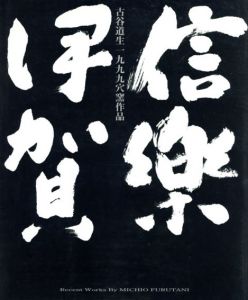 信樂
古谷道生一九九九穴窯作品
伊賀
Recent Works By MICHIO FURUTANI